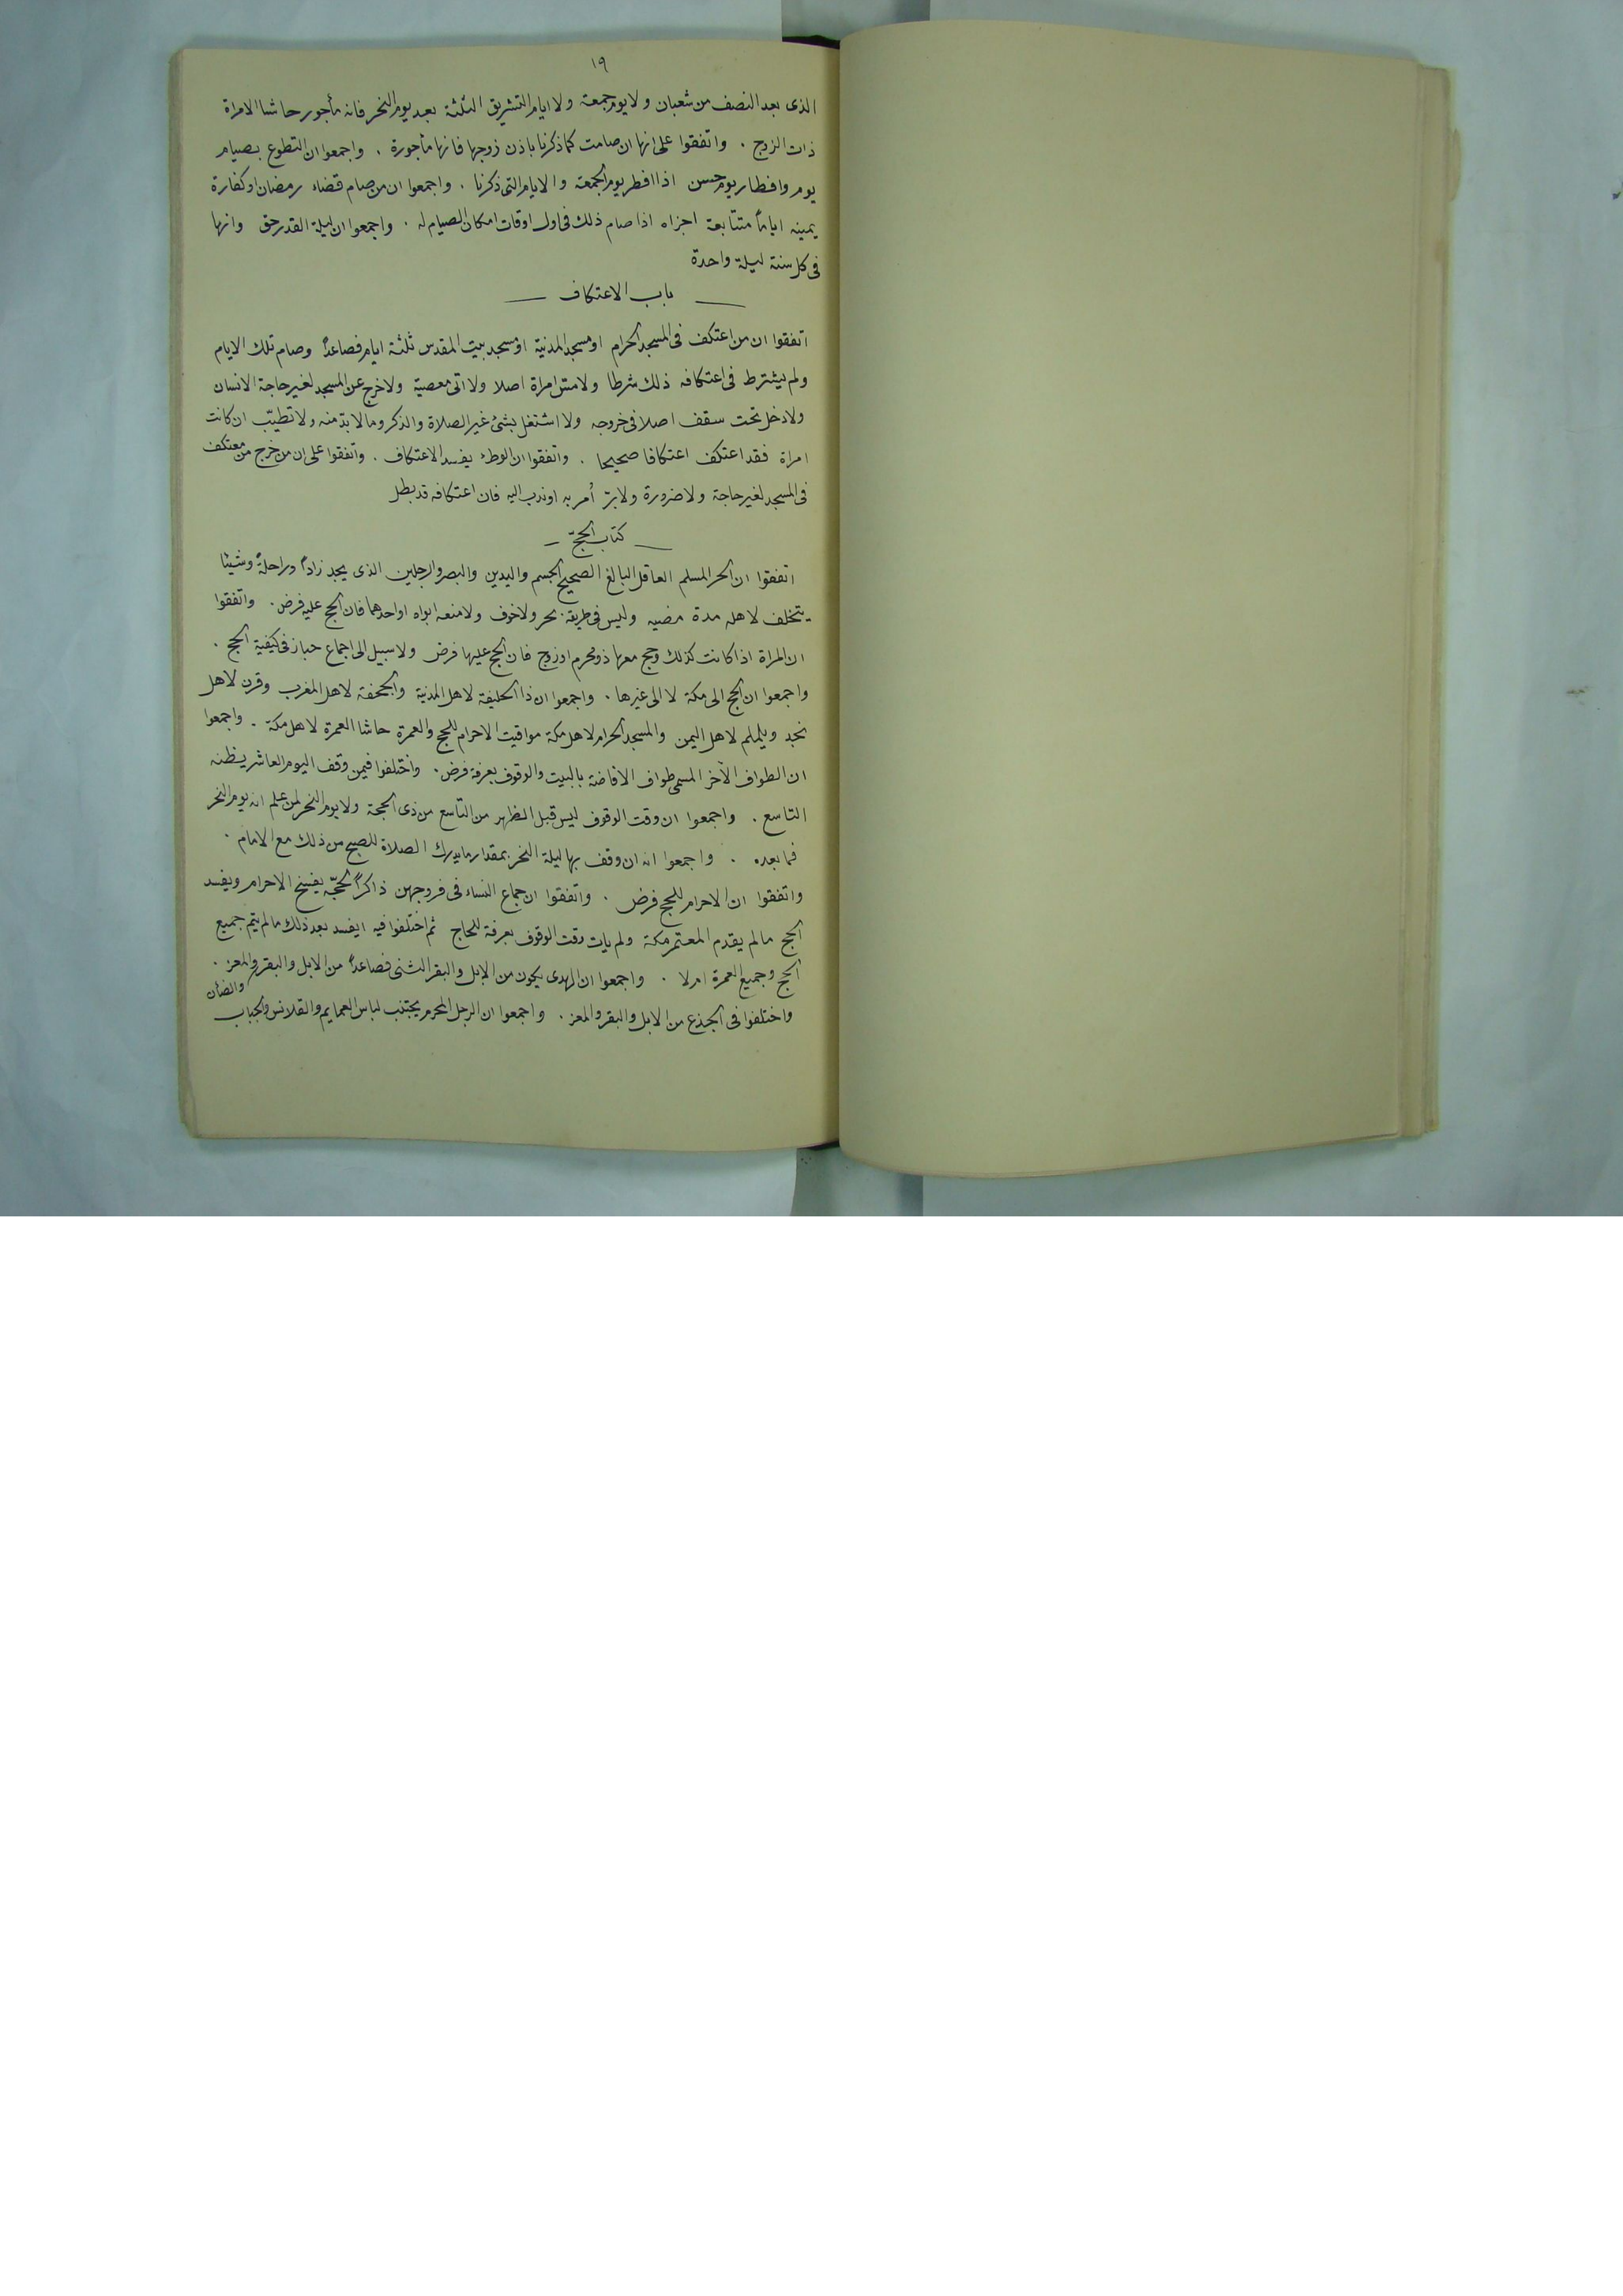 ١٩
الذى بعد النصف من شعبان ولا يوم جمعة ولا ايام التشريق الثلثة بعد يوم النحر فانه مأجور حاشا الامراة
ذات الزوج . واتفقوا على انها ان صامت كما ذكرنا باذن زوجها فانها مأجورة . واجمعوا ان التطوع بصيام
يوم وافطار يوم حسن اذا افطر يوم الجمعة والايام التى ذكرنا . واجمعوا ان من صام قضاء رمضان او كفارة
يمينه اياماً متتابعة اجزاه اذا صام ذلك فى اول اوقات امكان الصيام له . واجمعوا ان ليلة القدر حق وانها
فى كل سنة ليلة واحدة
باب الاعتكاف
اتفقوا ان من اعتكف فى المسجد الحرام او مسجد المدنية او مسجد بيت المقدس ثلثة ايام فصاعداً وصام تلك الايام
ولم يشترط فى اعتكافه ذلك شرطا ولا مسّ امراة اصلا ولا اتى معصية ولا خرج عن المسجد لغير حاجة الانسان
ولا دخل تحت سقف اصلا فى خروجه ولا اشتغل بشئ غير الصلاة والذكر وما لا بدّ منه ولا تطيّب ان كانت
امراة فقد اعتكف اعتكافا صحيحا . واتفقوا ان الوطء يفسد الاعتكاف . واتفقوا على ان من خرج من معتكف
فى المسجد لغير حاجة ولا ضرورة ولا برّ أمر به او ندب اليه فان اعتكافه قد بطل
كتاب الحجّ
اتفقوا ان الحر المسلم العاقل البالغ الصحيح الجسم واليدين والبصر والرجلين الذى يجد زاداً وراحلةً وشيئا
يتخلف لاهله مدة مضيه وليس فى طريقه بحر ولا خوف ولا منعه ابواه او احدهما فان الحج عليه فرض . واتفقوا
ان المراة اذا كانت كذلك وحج معها ذو محرم او زوج فان الحج عليها فرض ولا سبيل الى اجماع جاز فى كيفية الحج .
واجمعوا ان الحج الى مكة لا الى غيرها . واجمعوا ان ذا الحليفة لاهل المدنية والجحفة لاهل المغرب وقرن لاهل
نجد ويلملم لاهل اليمن والمسجد الحرام لاهل مكة مواقيت الاحرام للحج والعمرة حاشا العمرة لاهل مكة . واجمعوا
ان الطواف الآخر المسمى طواف الافاضة بالبيت والوقوف بعرفة فرض . واختلفوا فيمن وقف اليوم العاشر يظنه
التاسع . واجمعوا ان وقت الوقوف ليس قبل الظهر من التاسع من ذى الحجة ولا يوم النحر لمن علم انه يوم النحر
فما بعده . واجمعوا انه ان وقف بها ليلة النحر بمقدار ما يدرك الصلاة للصبح من ذلك مع الامام .
واتفقوا ان الاحرام للحج فرض . واتفقوا ان جماع النساء فى فروجهن ذاكراً لحجّه يفسخ الاحرام ويفسد
الحج ما لم يقدم المعتمر مكة ولم يات وقت الوقوف بعرفة للحاج ثم اختلفوا فيه ايفسد بعد ذلك ما لم يتم جميع
الحج وجميع العمرة ام لا . واجمعوا ان الهدى يكون من الابل والبقر الثنى فصاعداً من الابل والبقر والمعز .
والضأن
واختلفوا فى الجذع من الابل والبقر والمعز . واجمعوا ان الرجل المحرم يجتنب لباس العمايم والقلانس والجباب